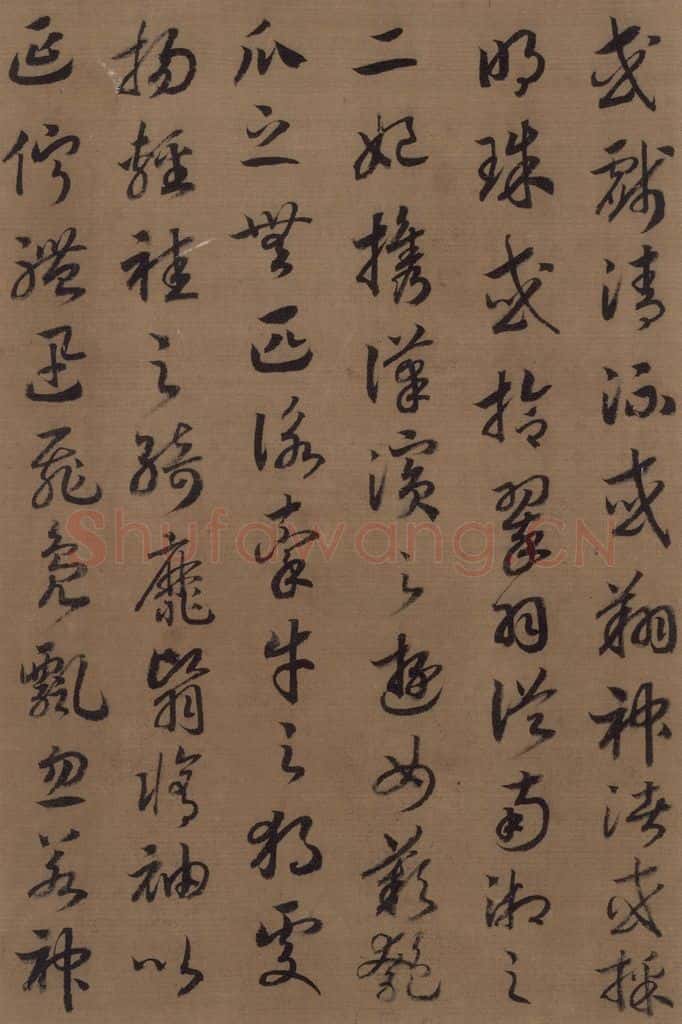 或戲清流或翔神渚或採
明珠或拾翠羽從南湘之
二妃攜漢濱之遊女歎匏
瓜之無匹詠牽牛之獨處
揚輕袿之綺靡翳脩袖以
延佇體迅飛鳧飄忽若神
Shufawang.CN